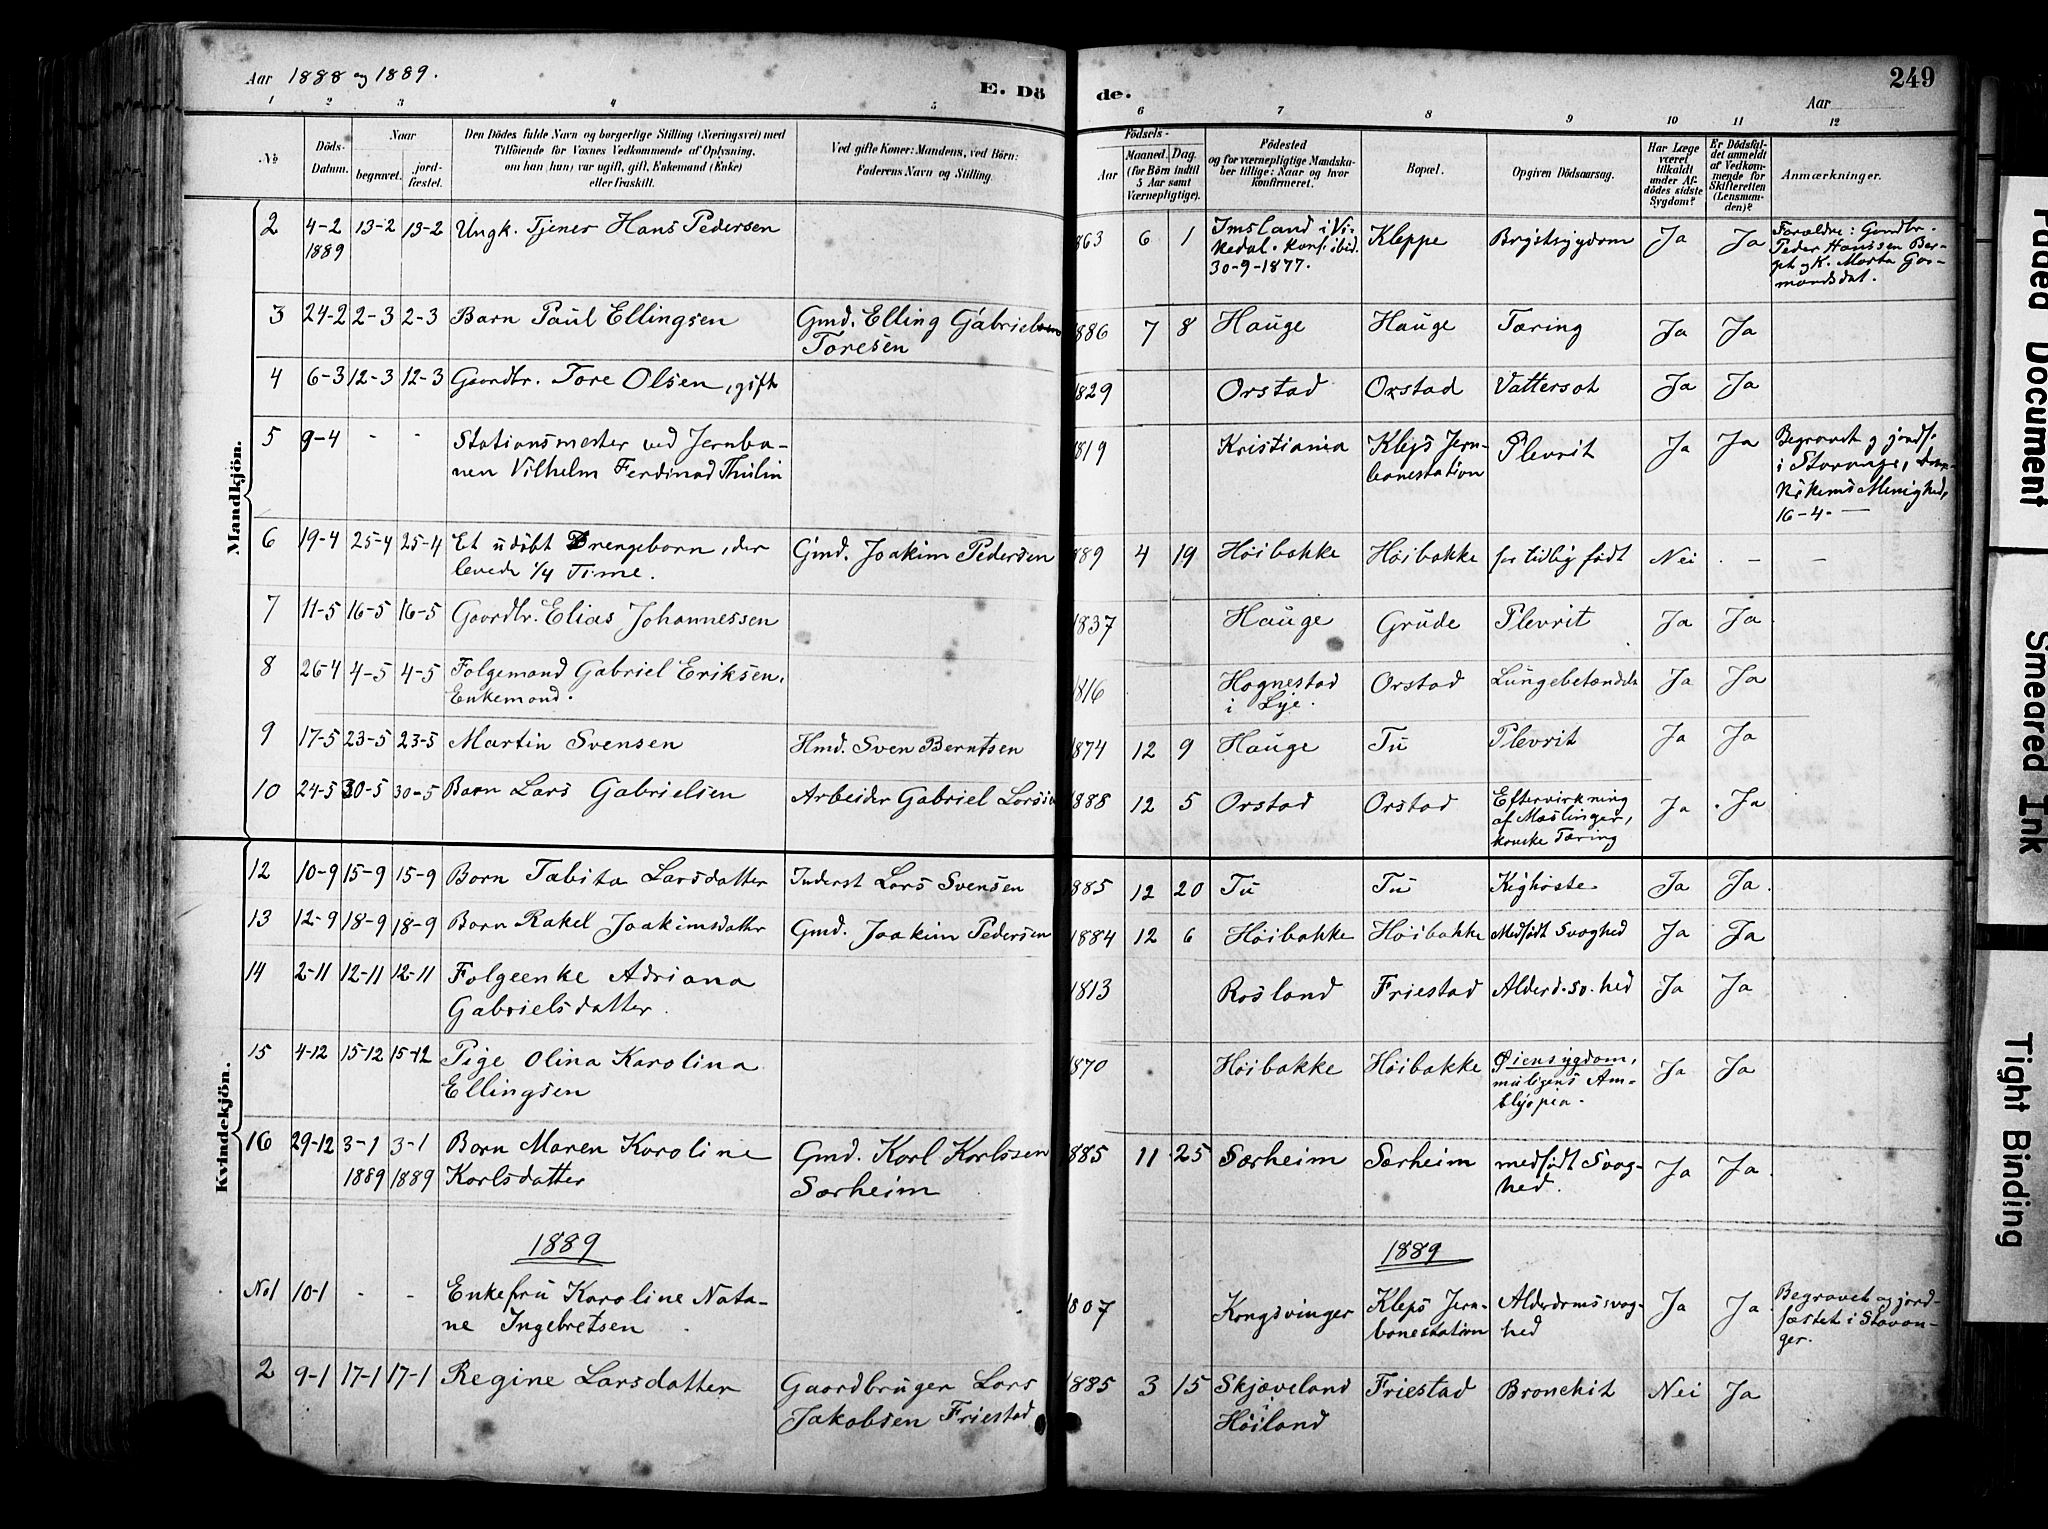 Aar 1888 og 1889.
E. Dö
de.
249
Aar
1 2 3 4 5 6 7 8 9 10 11 12
No
Döds-
Datum.
Naar
begravet.
jord-
fæstet.
Den Dödes fulde Navn og borgerlige Stilling (Næringsvei) med
Tilföiende for Voxnes Vedkommende af Oplysning,
om han (hun) var ugift, gift, Enkemand (Enke)
eller fraskilt.
Ved gifte Koner: Mandens, ved Börn:
Faderens Navn og Stilling.
Födsels-
Aar
Maaned. Dag.
(for Börn indtil
5 Aar samt
Værnepligtige).
Födested
og for værnepligtige Mandska-
ber tillige: Naar og hvor
konfirmeret.
Bopæl.
Opgiven Dödsaarsag.
Har Læge
været
tilkaldt
under Af-
dödes sidste
Sygdom?
Er Dödsfal-
det anmeldt
af Vedkom-
mende for
Skifteretten
(Lensman-
den)?
Anmærkninger.
Mandkjön.
2 4-2 1889 13-2 13-2 Ungk. Tjener Hans Pedersen 1863 6 1 Imsland i Vi-
kedal. Konf. ibid.
30-9-1877. Kleppe Brystsygdom Ja Ja Forældre: Gaardbr.
Peder Hanssen Ber-
get og K. Marta
3 24-2 2-3 2-3 Barn Paul Ellingsen Gmd. Elling Gabrielsen
Toresen 1886 7 8 Hauge Hauge Tæring Ja Ja
4 6-3 12-3 12-3 Gaardbr. Tore Olsen, gift 1829 Orstad Orstad Vattersot Ja Ja
5 9-4 - - Stationsmester ved Jernba-
nen Vilhelm Ferdinad Thulin 1819 Kristiania Kleps Jern-
banestation Plevrit Ja Ja Begravet og jordf.
i Stavanger,
Menighed,
16-4.
6 19-4 25-4 25-4 Et udöbt Drengebarn, der
levede 1/4 Time. Gmd. Joakim Pedersen 1889 4 19 Höibakke Höibakke for tidlig födt Nei - -
7 11-5 16-5 16-5 Gaardbr. Elias Johannessen 1837 Hauge Grude Plevrit Ja Ja
8 26-4 4-5 4-5 Folgemand Gabriel Eriksen,
Enkemand. 1816 Hognestad
i Lye. Orstad Lungebetændelse Ja Ja
9 17-5 23-5 23-5 Martin Svensen Hmd. Sven Berntsen 1874 12 9 Hauge Tu Plevrit Ja Ja
10 24-5 30-5 30-5 Barn Lars Gabrielsen Arbeider Gabriel Larsen 1888 12 5 Orstad Orstad Eftervirkning
af Mæslinger,
kanske Tæring Ja Ja
Kvindekjön.
12 10-9 15-9 15-9 Barn Tabita Larsdatter Inderst Lars Svensen 1885 12 20 Tu Tu Kighoste Ja Ja
13 12-9 18-9 18-9 Barn Rakel Joakimsdatter Gmd. Joakim Pedersen 1884 12 6 Höibakke Höibakke Medfödt Svaghed Ja Ja
14 2-11 12-11 12-11 Folgeenke Adriana
Gabrielsdatter 1813 Rosland Friestad Alderd.sv.hed Ja Ja
15 4-12 15-12 15-12 Pige Olina Karolina
Ellingsen 1870 Höibakke Höibakke Øiensygdom,
muligens Am-
blyopea. Ja Ja
16 29-12 3-1 1889 3-1 1889 Barn Maren Karoline
Karlsdatter Gmd. Karl Karlssen
Særheim 1885 11 25 Særheim Særheim medfödt Svag-
hed. Ja Ja
1889 1889
No 1 10-1 - - Enkefru Karoline Nata-
ne Ingebretsen 1807 Kongsvinger Kleps Jern-
banestation Alderdomssvag-
hed Ja Ja Begravet og jord-
fæstet i Stavan-
ger.
2 9-1 17-1 17-1 Regine Larsdatter Gaardbruger Lars
Jakobsen Friestad 1885 3 15 Skjæveland
i
Höiland Friestad Bronchit Nei Ja
Faded Document
Smeared Ink
Tight Binding